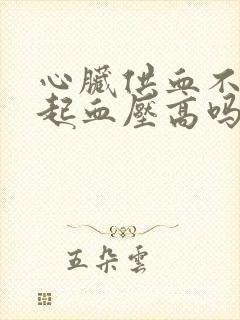 心臟供血不
起血壓高吗
五朵雲